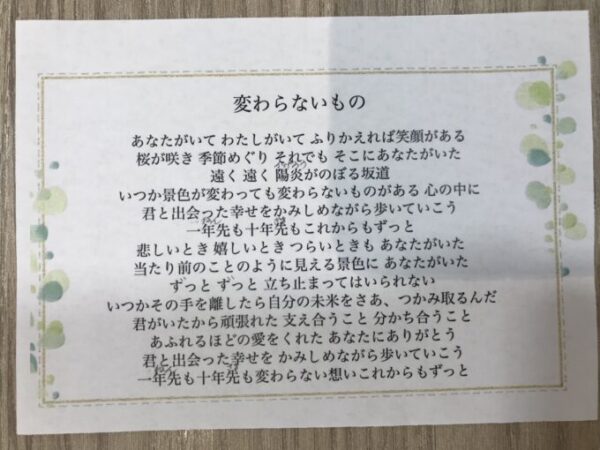 変わらないもの
あなたがいて わたしがいて ふりかえれば笑顔がある
桜が咲き 季節めぐり それでも そこにあなたがいた
遠く 遠く 陽炎がのぼる坂道
いつか景色が変わっても変わらないものがある 心の中に
君と出会った幸せをかみしめながら歩いていこう
一年先も十年先もこれからもずっと
悲しいとき 嬉しいとき つらいときも あなたがいた
当たり前のことのように見える景色に あなたがいた
ずっと ずっと 立ち止まってはいられない
いつかその手を離したら自分の未米をさあ、つかみ取るんだ
君がいたから頑張れた 支え合うこと 分かち合うこと
あふれるほどの愛をくれた あなたにありがとう
君と出会った幸せを かみしめながら歩いていこう
一年先も十年先も変わらない想いこれからもずっと